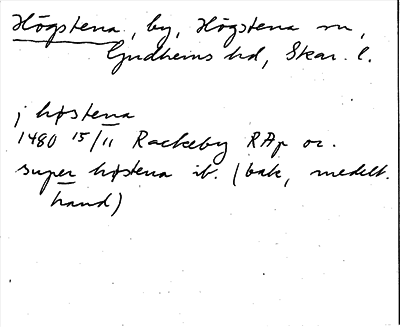 Högstena, by, Högstena sn,
Gudhems hd, Skar. l.
j høstena
1480 15/11 Rackeby RAp or.
super høstena ib. (bak, medelt.
hand)